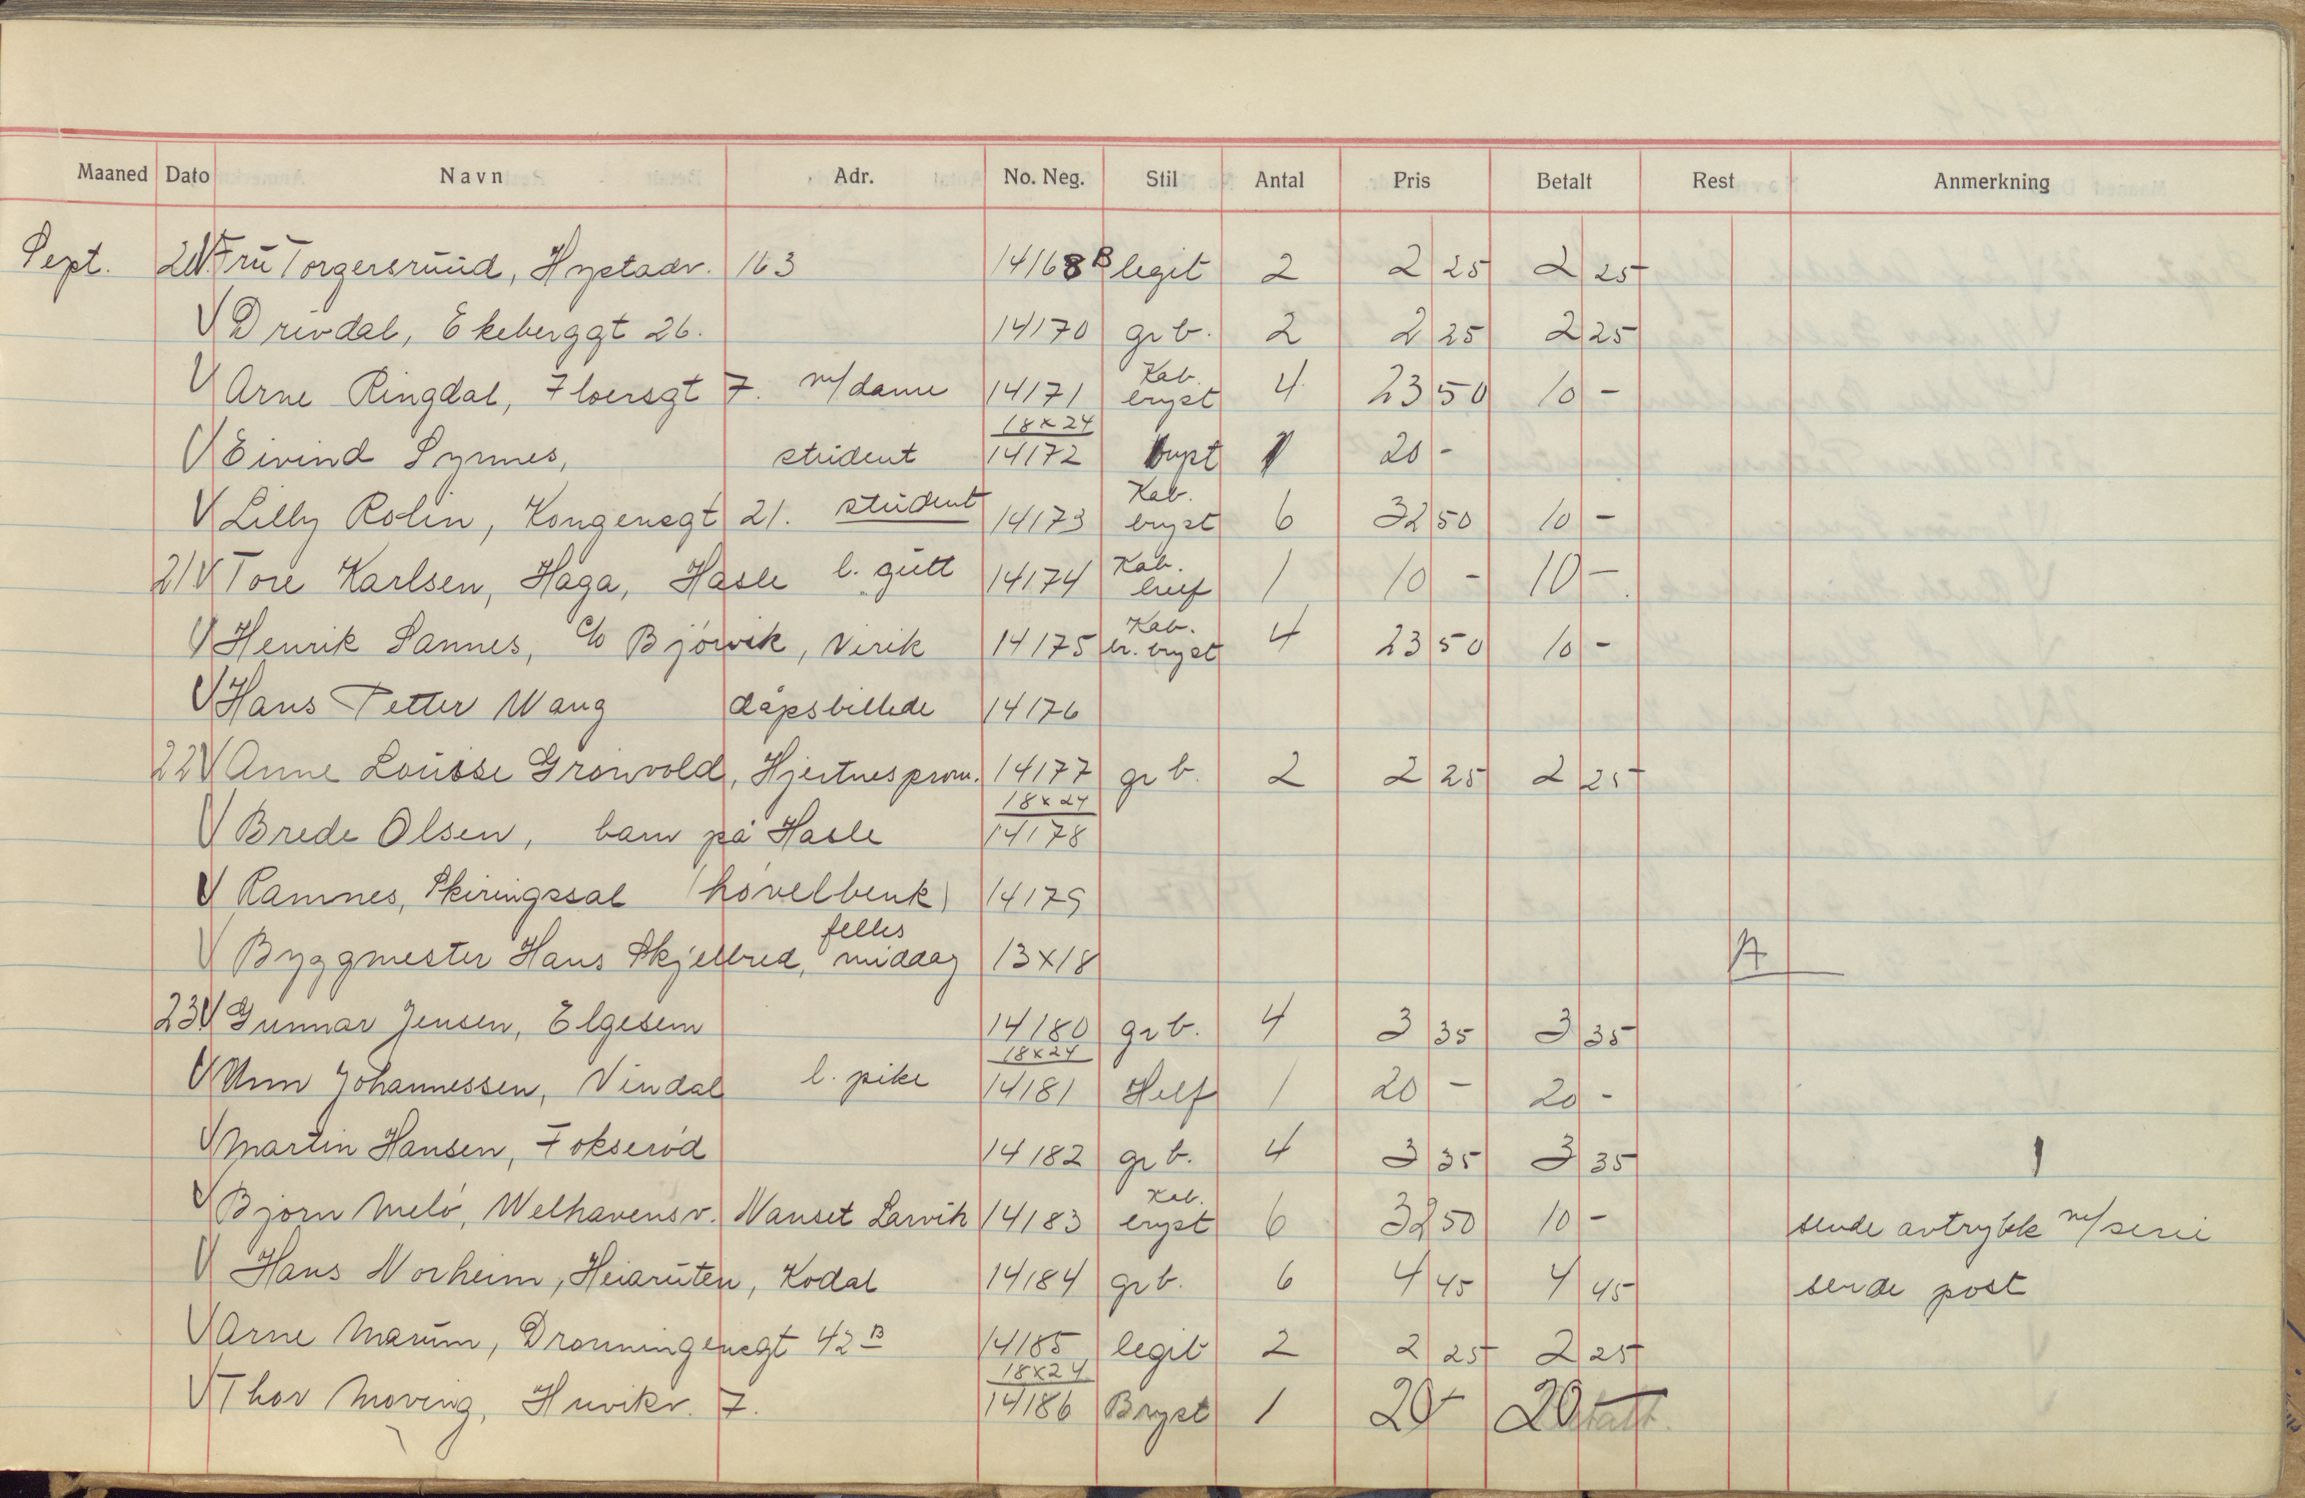 Maaned Dato Navn Adr. No. Neg. Stil Antal Pris Betalt Rest Anmerkning
Sept. V Fru Torgersruud, Hystadv. 163 14168 B legit 2 2 25 2 25
V Drivdal, Ekeberggt 26. 14170 grb. 2 2 25 2 25
V Arne Ringdal, Floersgt 7. m/dame 14171 Kab. bryst 4 23 50 10 -
V Eivind Synnes, student 18x24 14172 bryst 1 20 -
V Lilly Rolin, Kongensgt 21. student 14173 Kab. bryst 6 32 50 10 -
21 V Tore Karlsen, Haga, Hasle l. gutt 14174 Kab. 1 10 - 10 -
V Henrik Sannes, c/o Bjórvik, Virik 14175 Kab. br. bryst 4 23 50 10 -
V Hans Petter Wang dåpsbillede 14176
22 V Anne Louise Grønvold, Hjertnesprom. 14177 grb. 2 2 25 2 25
V Brede Olsen, barn på Hasle 18x24 14178
V Ramnes, Skiringssal (hóvelbenk) 14179
V Byggmester Hans Skjelbred, felles middag 13x18 A
23 V Gunnar Jensen, Elgesem 14180 grb. 4 3 35 3 35
V Unn Johannessen, Vindal l. pike 18x24 14181 Helf 1 20 - 20 -
V Martin Hansen, Fokseród 14182 grb. 4 3 35 3 35
V Bjørn Meló, Welhavensv. Nanset Larvik 14183 Kab. bryst 6 32 50 10 - sende avtrykk m/serie
V Hans Norheim, Heiaruten, Kodal 14184 grb. 6 4 45 4 45 sende post
V Arne Marum, Dronningensgt 42 B 14185 legit 2 2 25 2 25
V Thor Moving, Huvikv. 7. 18x24 14186 Bryst 1 20 - 20 -